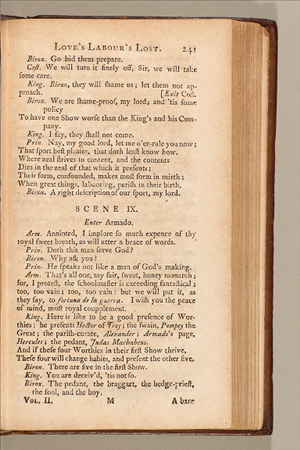 LOVE'S LABOUR'S LOST. 241
Biron. Go bid them prepare.
Cost. We will turn it finely off, Sir, we will take
some care.
King. Biron, they will shame us; let them not ap-
proach. [Exit Cost.
Biron. We are shame-proof, my lord; and 'tis some
policy
To have one Show worse than the King's and his Com-
pany.
King. I say, they shall not come.
Prin. Nay, my good lord, let me o'er-rule you now;
That sport best pleases, that doth least know how.
Where zeal strives to content, and the contents
Dies in the zeal of that which it presents;
Their form, confounded, makes most form in mirth;
When great things, labouring, perish in their birth.
Biron. A right description of our sport, my lord.
SCENE IX.
Enter Armado.
Arm. Anointed, I implore so much expence of thy
royal sweet breath, as will utter a brace of words.
Prin. Doth this man serve God?
Biron. Why ask you?
Prin. He speaks not like a man of God's making.
Arm. That's all one, my fair, sweet, honey monarch;
for, I protest, the schoolmaster is exceeding fantastical;
too, too vain; too, too vain: but we will put it, as
they say, to fortuna de la guerra. I wish you the peace
of mind, most royal coupplement.
King. Here is like to be a good presence of Wor-
thies: he presents Hector of Troy; the swain, Pompey the
Great; the parish-curate, Alexander; Armado's page,
Hercules; the pedant, Judas Machabeus.
And if these four Worthies in their first Show thrive,
These four will change habits, and present the other five.
Biron. There are five in the first Show.
King. You are deceiv'd, 'tis not so.
Biron. The pedant, the braggart, the hedge-priest,
the fool, and the boy.
VOL. II. M A bare